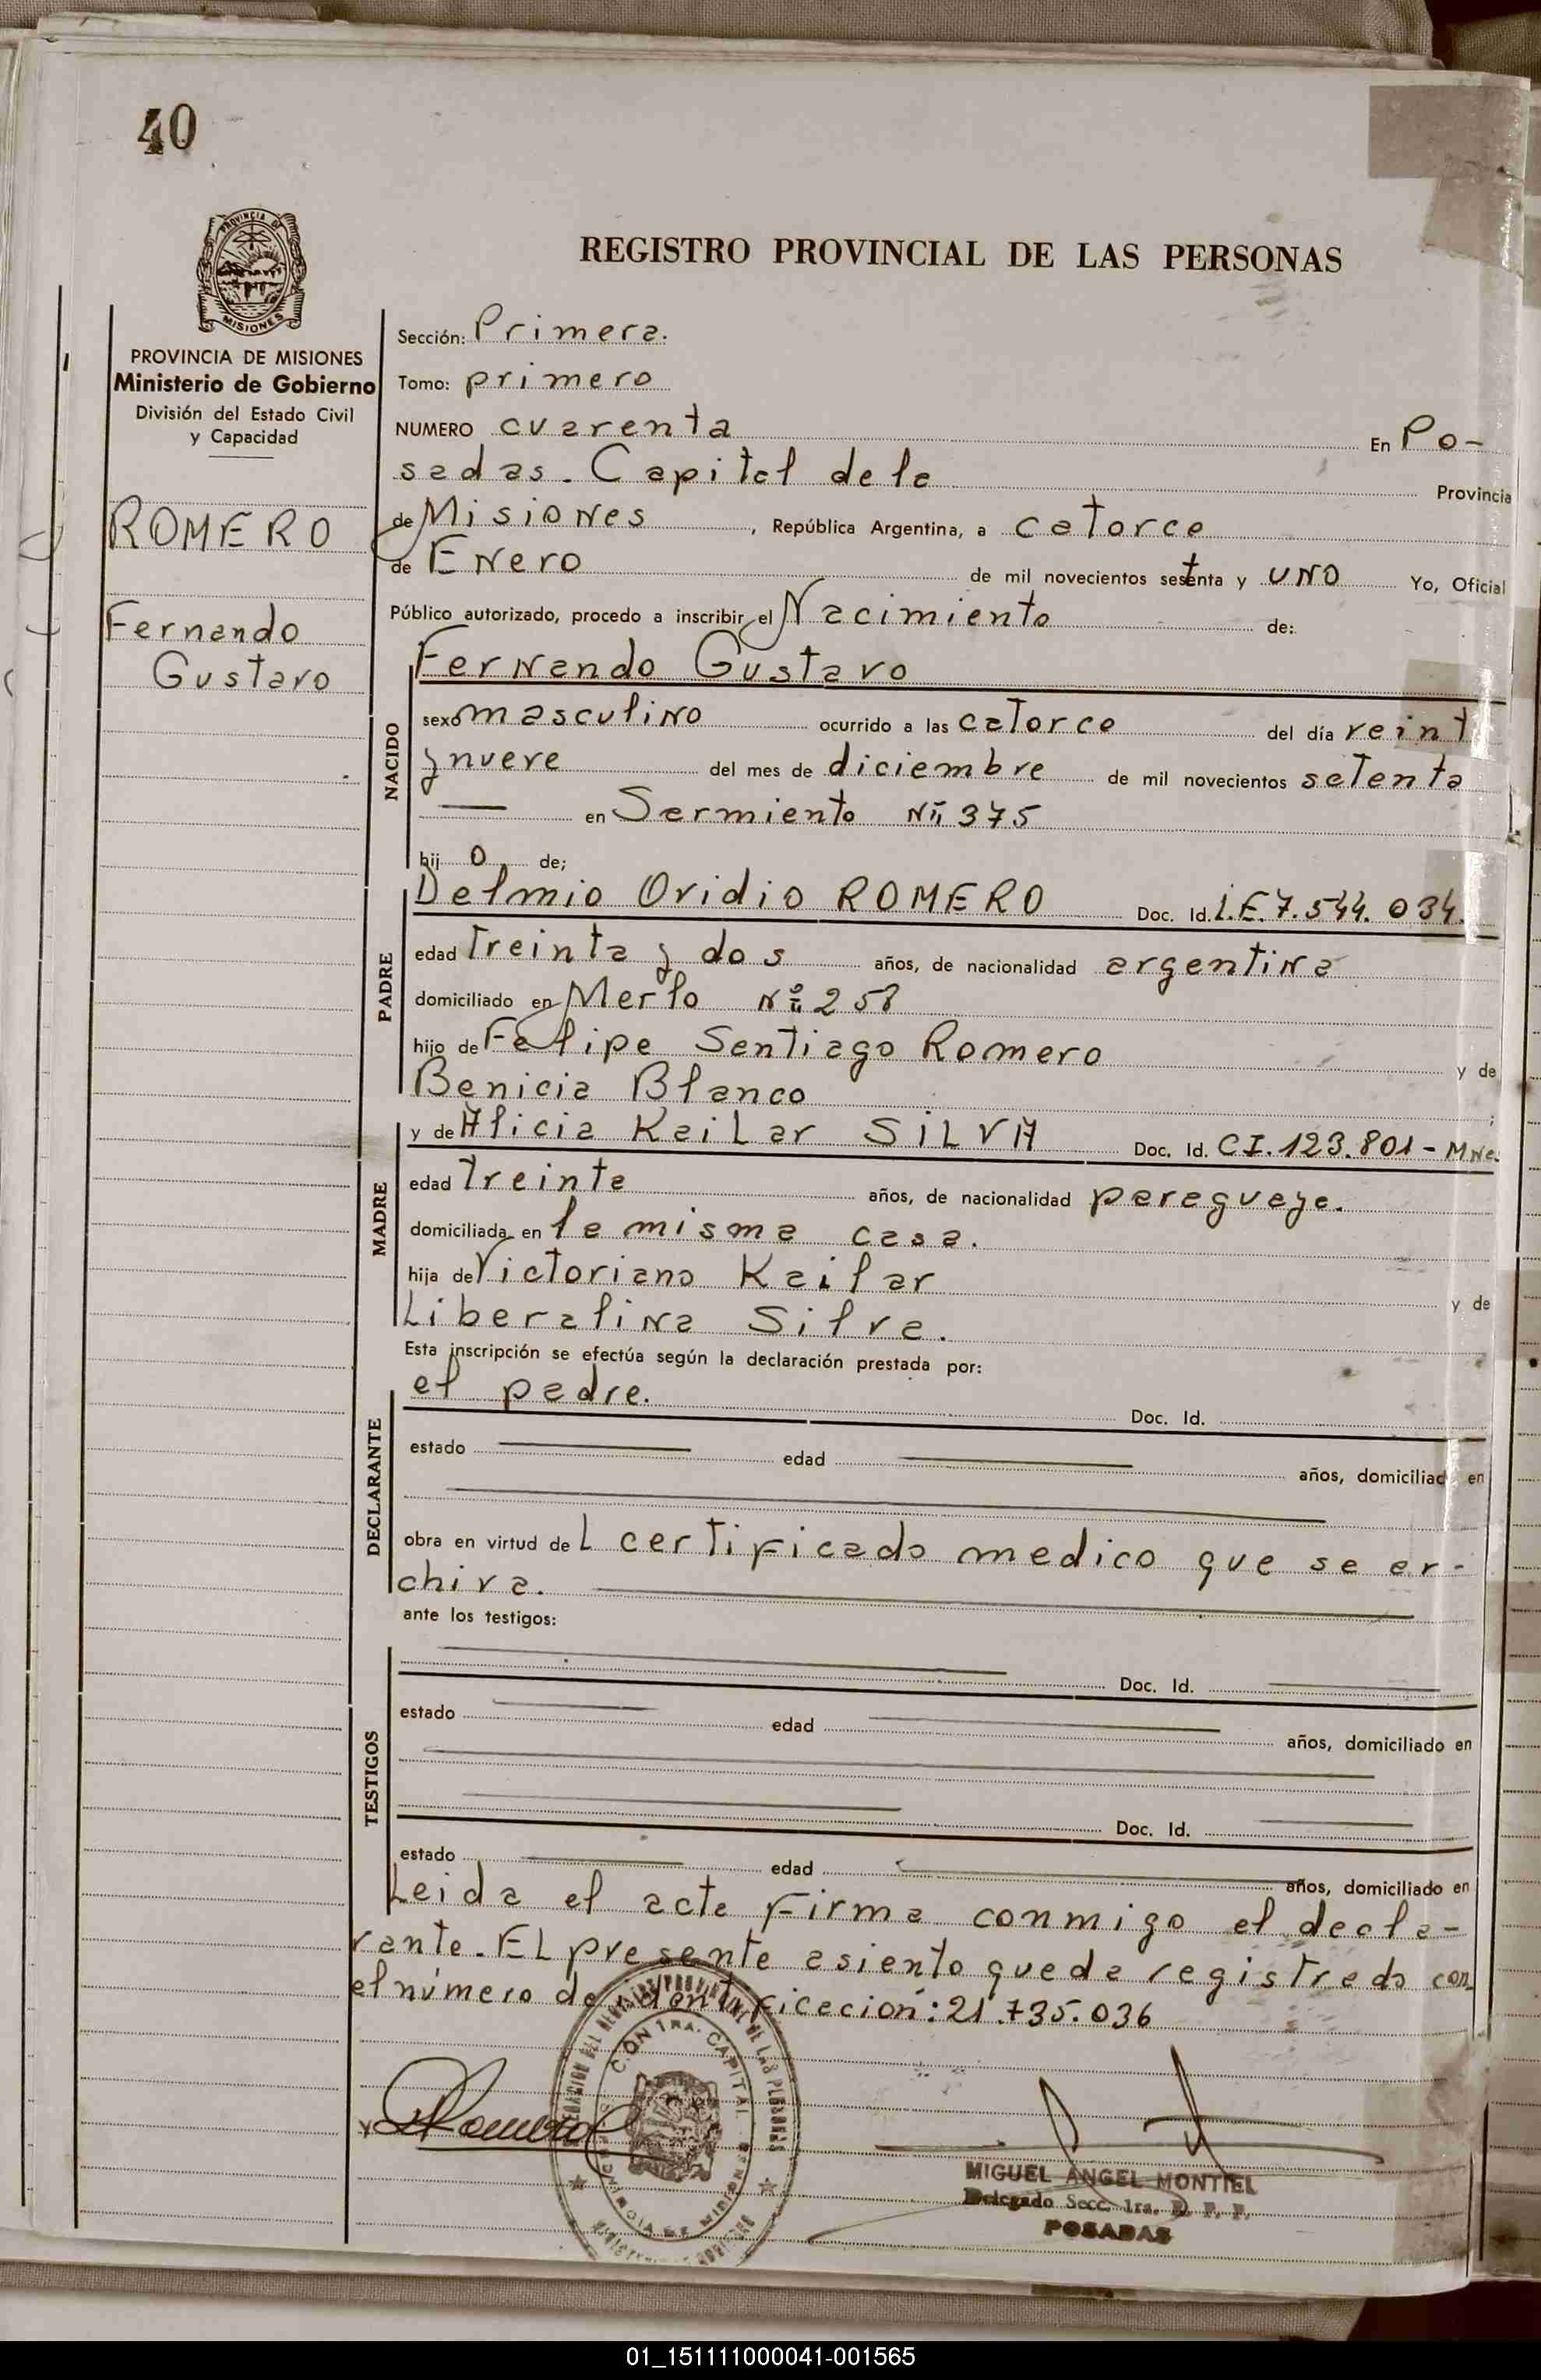 40
PROVINCIA DE
MISIONES
REGISTRO PROVINCIAL DE LAS PERSONAS
PROVINCIA DE MISIONES
Ministerio de Gobierno
División del Estado Civil
y Capacidad
ROMERO
Fernando
Gustavo
Sección: Primera.
Tomo: primero
NUMERO cuarenta En Po-
sadas. Capital de la Provincia
de Misiones, República Argentina, a catorce
de Enero de mil novecientos setenta y uno Yo, Oficial
Público autorizado, procedo a inscribir el Nacimiento de:
Fernando Gustavo
NACIDO
sexo masculino ocurrido a las catorce del día veint
y nueve del mes de diciembre de mil novecientos setenta
— en Sarmiento Nº 375
hij o de;
PADRE
Delmio Ovidio ROMERO Doc. Id. L.E. 7.544.034.
edad treinta y dos años, de nacionalidad argentina
domiciliado en Merlo Nº 258
hijo de Felipe Santiago Romero y de
Benicia Blanco ;
MADRE
y de Alicia Kailar SILVA Doc. Id. CI. 123.801 - Mnes.
edad treinta años, de nacionalidad paraguaya.
domiciliada en la misma casa.
hija de Victoriano Kailar y de
Liberalina Silva.
Esta inscripción se efectúa según la declaración prestada por:
DECLARANTE
el padre. Doc. Id.
estado — edad — años, domiciliad en
obra en virtud de L certificado medico que se ar-
chiva.
ante los testigos:
TESTIGOS
Doc. Id.
estado edad años, domiciliado en
Doc. Id.
estado edad años, domiciliado en
Leida el acta firma conmigo el decla-
rante. EL presente asiento queda registrado con
el número de identificación: 21.735.036
Romero
CON 1RA. CAPITAL
MIGUEL ANGEL MONTIEL
Delegado Secc. 1ra. R. P. P.
POSADAS
01_151111000041-001565